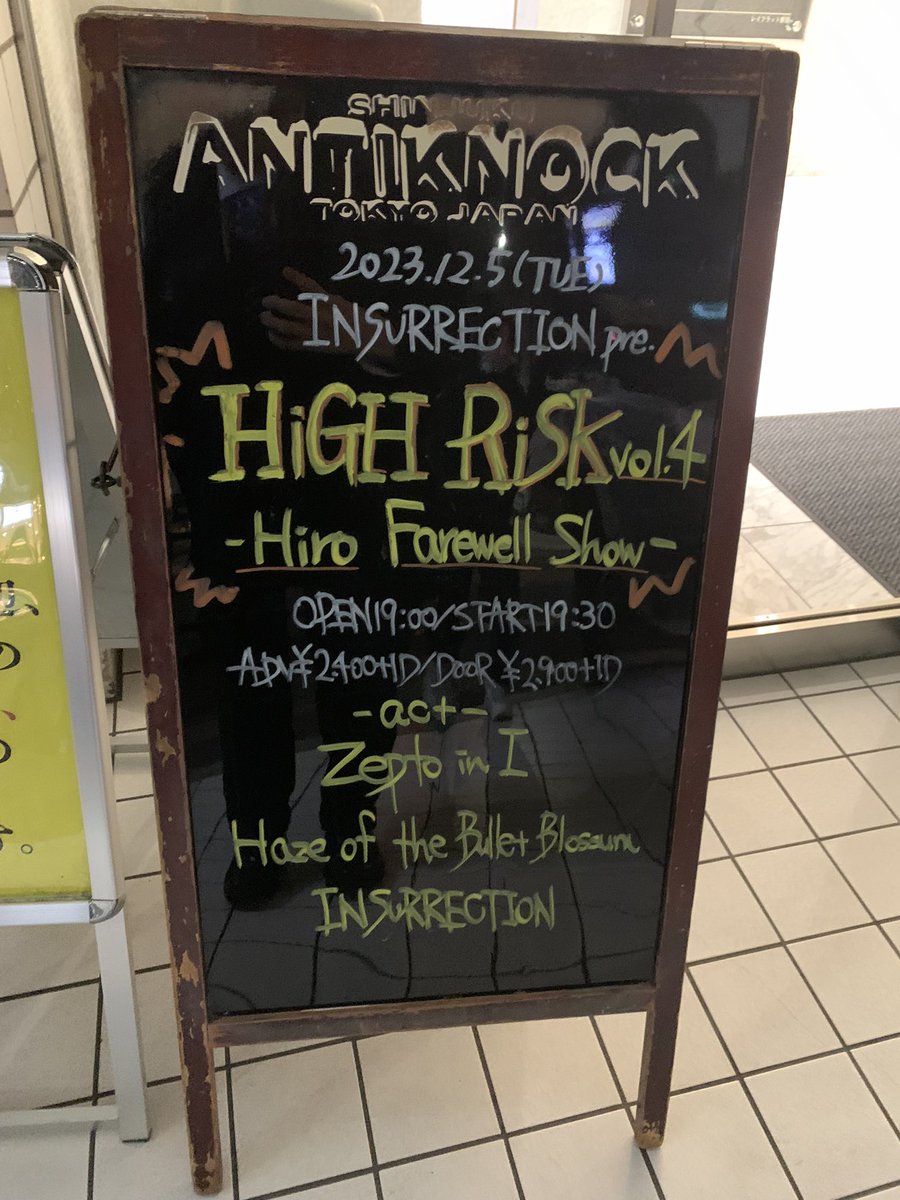 SHINJUKU
ANTIKNOCK
TOKYO JAPAN
2023.12.5(TUE)
INSURRECTION pre.
HiGH RiSK vol.4
-Hiro Farewell Show-
OPEN19:00/START19:30
ADV¥2.400+1D/DOOR ¥2.900+1D
-act-
Zepto in I
Haze of the Bullet Blossum
INSURRECTION